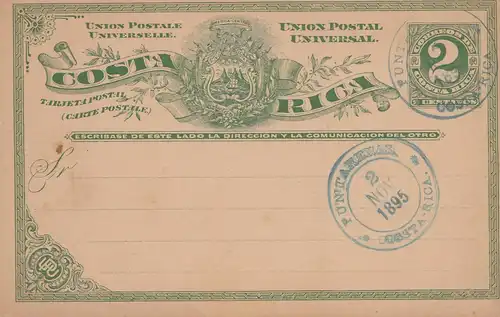 UNION POSTALE
UNIVERSELLE.
UNION POSTAL
UNIVERSAL.
COSTA
RICA
TARJETA POSTAL
(CARTE POSTALE.)
CORREOS DE
COSTA RICA
2
CENTAVOS
PUNT
RICA
ESCRIBASE DE ESTE LADO LA DIRECCION Y LA COMUNICACION DEL OTRO
Sr.
PUNTARENAS
2
NOV
1895
COSTA-RICA.